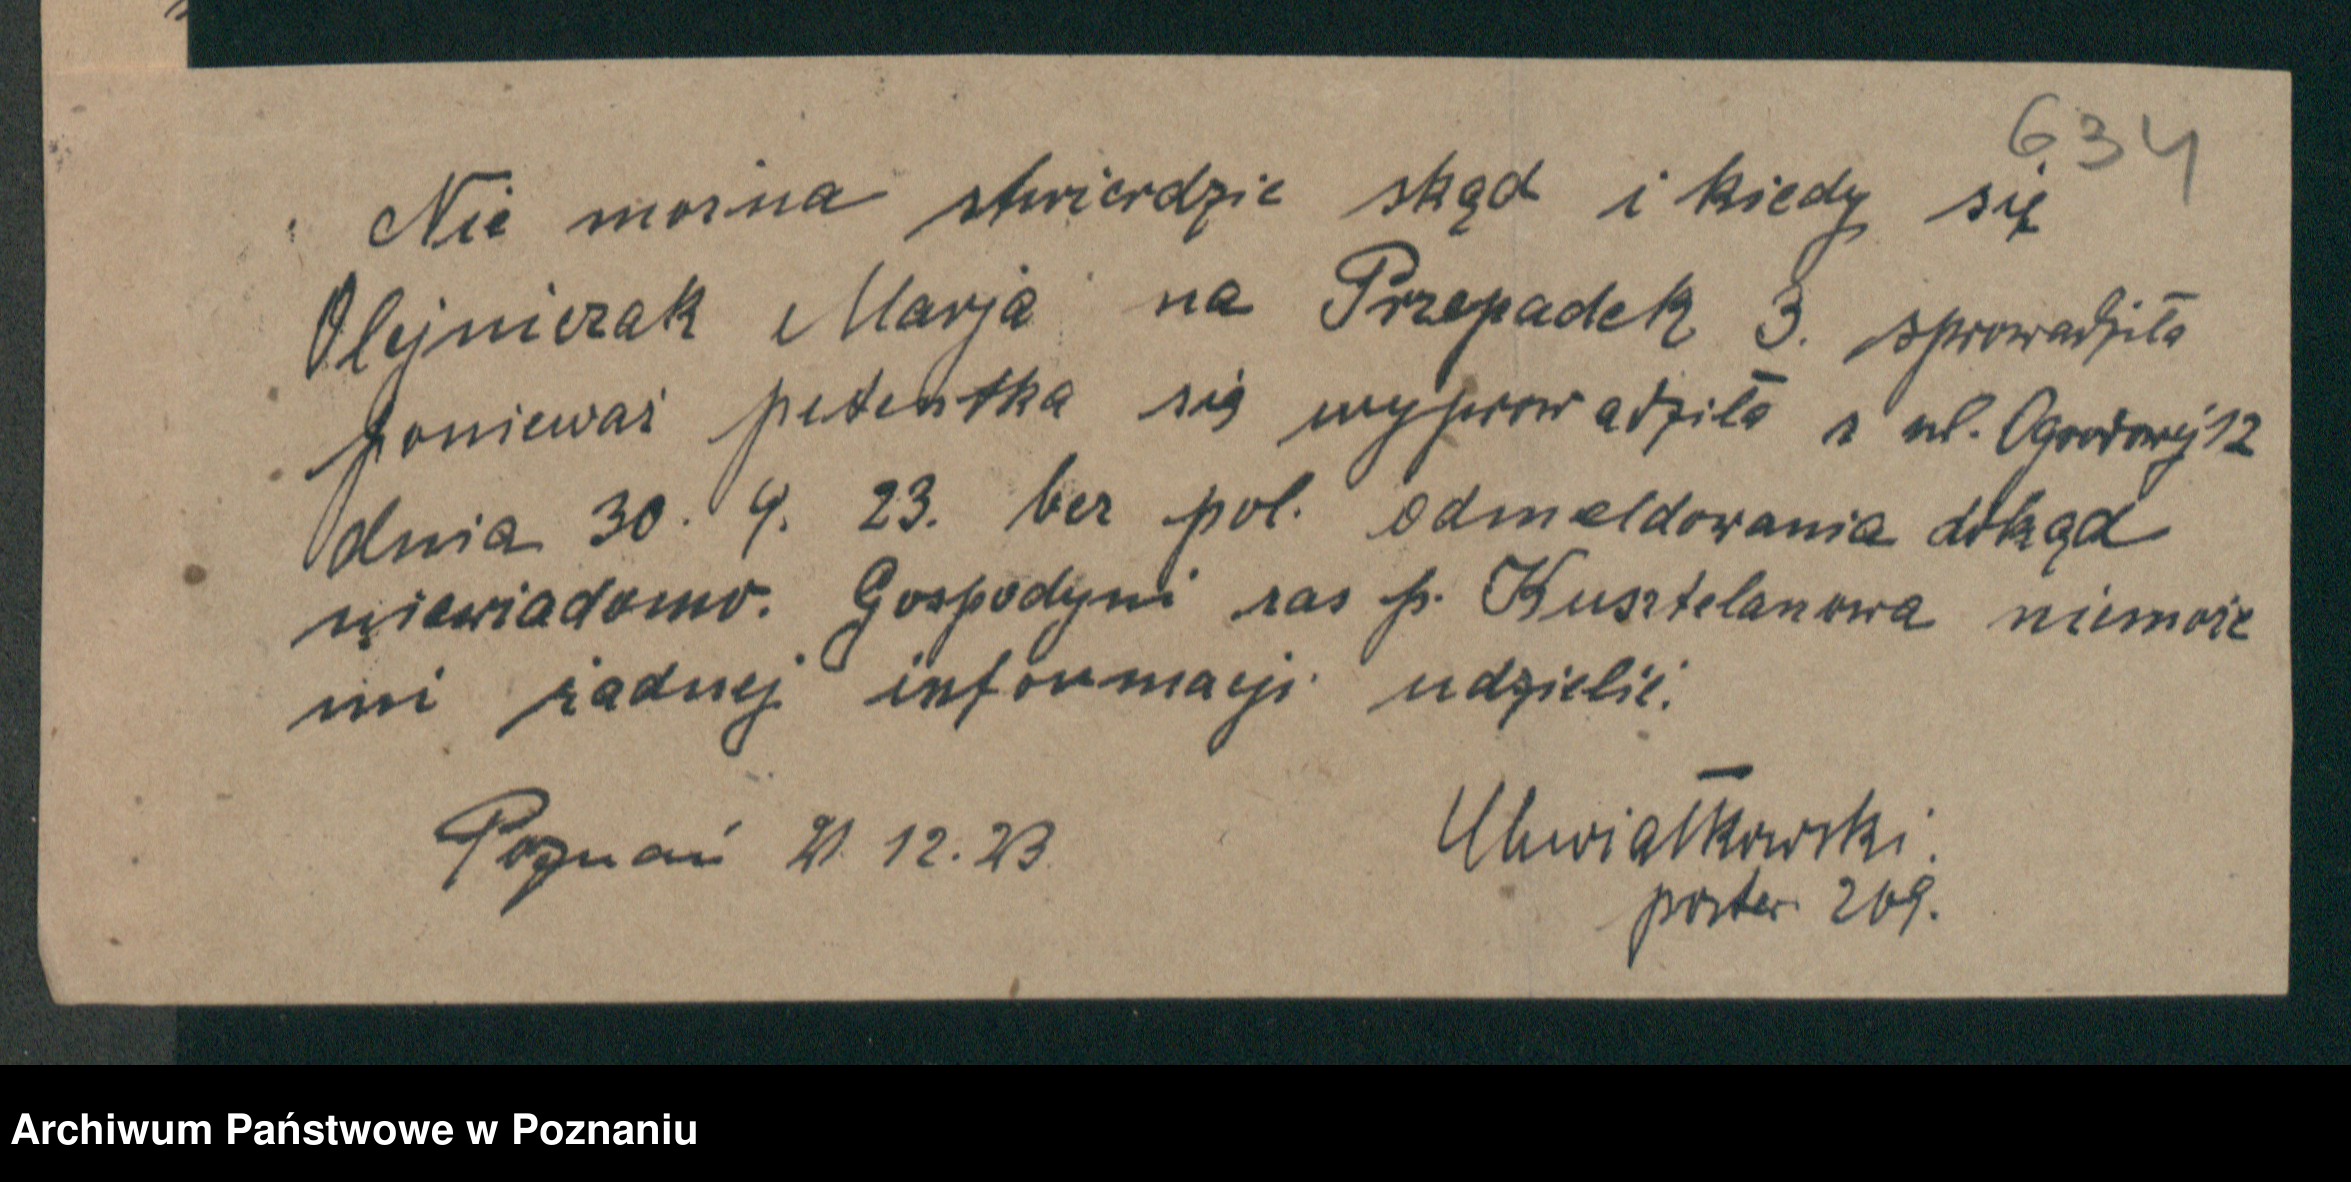 634
Nie można stwierdzić skąd i kiedy się
Olejniczak Marja na Przepadek 3. sprowadziła
ponieważ petentka się wyprowadziła z ul. Ogrodowej 12
dnia 30. 9. 23. bez pol. odmeldowania dokąd
niewiadomo. Gospodyni zas p. Kusztelanowa niemoże
mi żadnej informacji udzielić.
Poznań 21. 12. 23
Chwiałkowski.
poster 269.
Archiwum Państwowe w Poznaniu